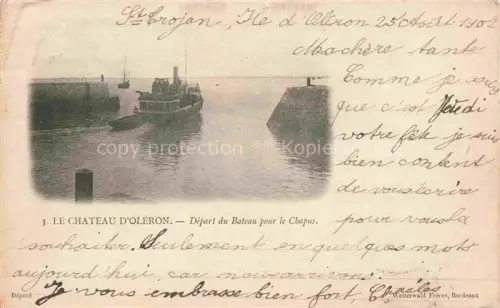 St Trojan, Ile d Oléron 25 Août 1902
Machère tante
Comme je sais
que c'est Jeudi
votre fête je suis
bien content
de vous écrire
pour vous la
souhaiter. Seulement en quelques mots
aujourd'hui, car nous
Je vous embrasse bien fort, Charles
copy protection
3 LE CHATEAU D'OLERON. — Départ du Bateau pour le Chapus.
Déposé
Wetterwald Frères, Bordeaux